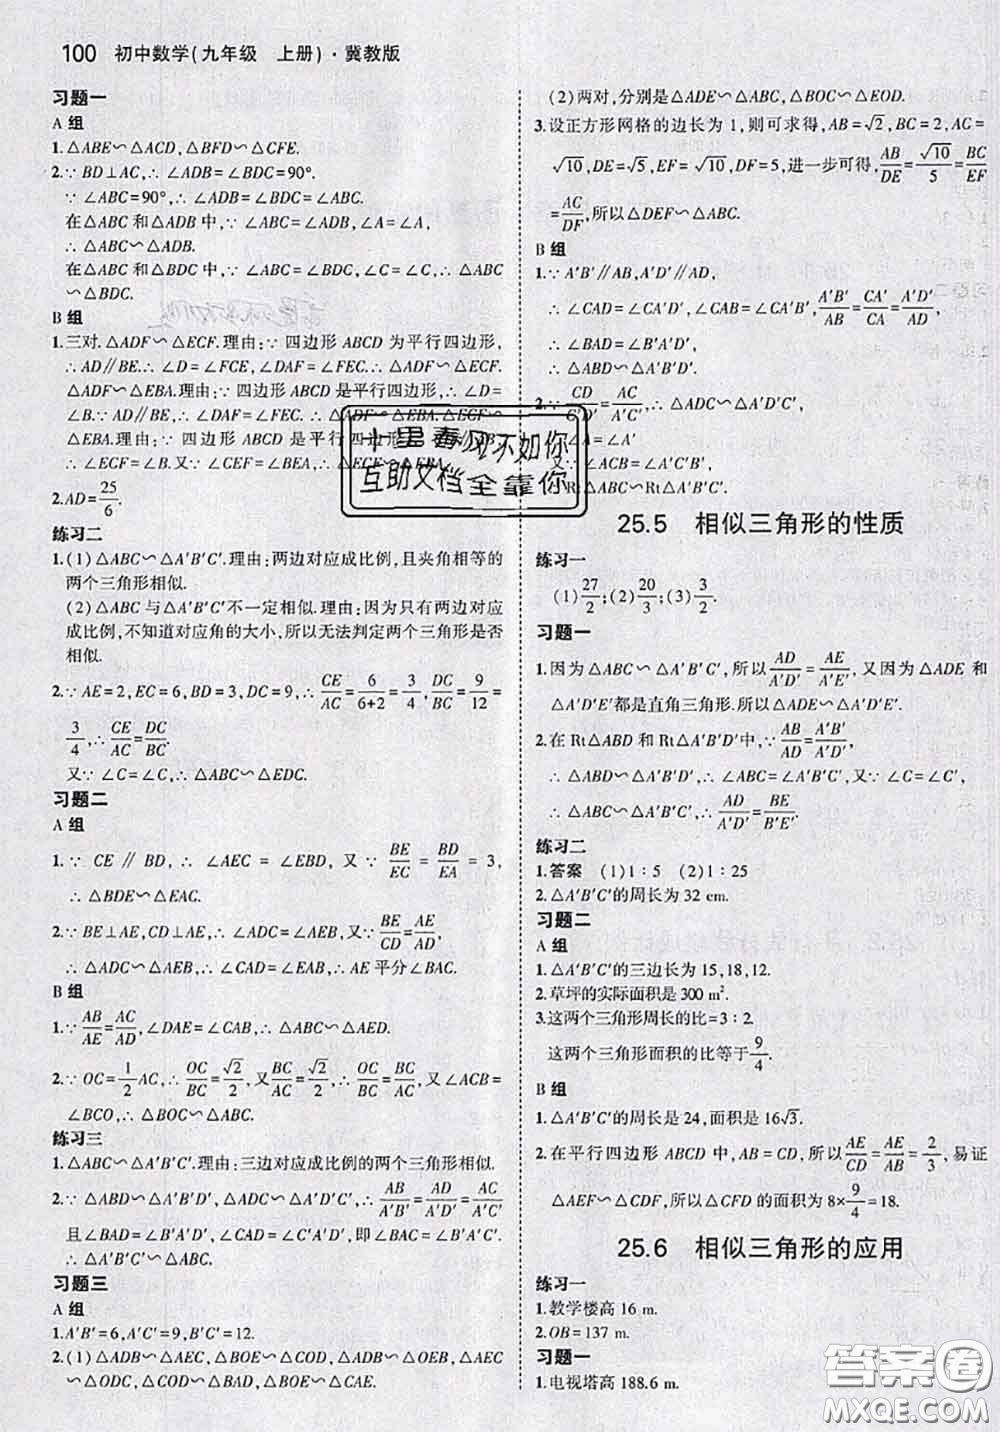 100 初中数学(九年级 上册)·冀教版
习题一
A 组
1.△ABE∽△ACD,△BFD∽△CFE.
2.∵ BD⊥AC,∴ ∠ADB=∠BDC=90°.
∵ ∠ABC=90°,∴ ∠ABC=∠ADB.
在△ABC 和△ADB 中,∵ ∠ABC=∠ADB,∠A=∠A,
∴ △ABC∽△ADB.
在△ABC 和△BDC 中,∵ ∠ABC=∠BDC,∠C=∠C,∴ △ABC
∽△BDC.
B 组
1.三对.△ADF∽△ECF.理由:∵ 四边形 ABCD 为平行四边形,
∴ AD∥BE.∴ ∠D=∠FCE,∠DAF=∠FEC.∴ △ADF∽△ECF.
△ADF∽△EBA.理由:∵ 四边形 ABCD 是平行四边形,∴ ∠D=
∠B.∵ AD∥BE,∴ ∠DAF=∠FEC.∴ △ADF∽△EBA.△ECF∽
△EBA.理由:∵ 四边形 ABCD 是平行四边形,
∴ ∠ECF=∠B.又∵ ∠CEF=∠BEA,∴ △ECF∽△EBA.
2.AD=25/6.
练习二
1.(1)△ABC∽△A′B′C′.理由:两边对应成比例,且夹角相等的
两个三角形相似.
(2)△ABC与△A′B′C′不一定相似.理由:因为只有两边对应
成比例,不知道对应角的大小,所以无法判定两个三角形是否
相似.
2.∵ AE=2,EC=6,BD=3,DC=9,∴ CE/AC=6/(6+2)=3/4,DC/BC=9/12=
3/4,∴ CE/AC=DC/BC.
又∵ ∠C=∠C,∴ △ABC∽△EDC.
习题二
A 组
1.∵ CE∥BD,∴ ∠AEC=∠EBD,又∵ BE/EC=BD/EA=3,
∴ △BDE∽△EAC.
2.∵ BE⊥AE,CD⊥AE,∴ ∠ADC=∠AEB=90°,又∵ BE/CD=AE/AD,
∴ △ADC∽△AEB,∴ ∠CAD=∠EAB,∴ AE 平分∠BAC.
B 组
1.∵ AB/AE=AC/AD,∠DAE=∠CAB,∴ △ABC∽△AED.
2.∵ OC=1/2AC,∴ OC/BC=√2/2,又BC/AC=√2/2,∴ OC/BC=BC/AC,又∠ACB=
∠BCO,∴ △BOC∽△ABC.
练习三
1.△ABC∽△A′B′C′.理由:三边对应成比例的两个三角形相似.
2.∵ △ABD∽△A′B′D′,△ADC∽△A′D′C′,∴ AB/A′B′=AD/A′D′=AC/A′C′
且∠BAD=∠B′A′D′,∠DAC=∠C′A′D′,即∠BAC=∠B′A′C′,
∴ △A′B′C′∽△ABC.
习题三
A 组
1.A′B′=6,A′C′=9,B′C′=12.
2.(1)△ADB∽△AEC,△BOE∽△COD,△ADB∽△OEB,△AEC
∽△ODC,△ADB∽△ODC,△BOE∽△CAE.
(2)两对,分别是△ADE∽△ABC,△BOC∽△EOD.
3.设正方形网格的边长为 1,则可求得,AB=√2,BC=2,AC=
√10,DE=√5,EF=√10,DF=5,进一步可得,AB/DE=√10/5=BC/EF
=AC/DF,所以△DEF∽△ABC.
B 组
1.∵ A′B′∥AB,A′D′∥AD,
∴ ∠CAD=∠CA′D′,∠CAB=∠CA′B′,A′B′/AB=CA′/CA=A′D′/AD,
∴ ∠BAD=∠B′A′D′,
∴ △ABD∽△A′B′D′.
2.∵ CD/C′D′=AC/A′C′,∴ △ACD∽△A′D′C′,
Rt△ABC∽Rt△A′B′C′.
25.5 相似三角形的性质
练习一
(1)27/2;(2)20/3;(3)3/2.
习题一
1.因为△ABC∽△A′B′C′,所以AD/A′D′=AE/A′E′,又因为△ADE 和
△A′D′E′都是直角三角形.所以△ADE∽△A′D′E′.
2.在 Rt△ABD 和 Rt△A′B′D′中,∵ AB/AD=A′B′/A′D′,
∴ △ABD∽△A′B′D′,∴ ∠ABC=∠A′B′C′,又∵ ∠C=∠C′,
∴ △ABC∽△A′B′C′,∴ AD/A′D′=BE/B′E′.
练习二
1.答案 (1)1∶5 (2)1∶25
2.△A′B′C′的周长为 32 cm.
习题二
A 组
1.△A′B′C′的三边长为 15,18,12.
2.草坪的实际面积是 300 m².
3.这两个三角形周长的比=3∶2.
这两个三角形面积的比等于9/4.
B 组
1.△A′B′C′的周长是 24,面积是 16√3.
2.在平行四边形 ABCD 中,AB=CD,所以AE/CD=AE/AB=2/3,易证
△AEF∽△CDF,所以△CFD 的面积为 8×9/4=18.
25.6 相似三角形的应用
练习一
1.教学楼高 16 m.
2.OB=137 m.
习题一
1.电视塔高 188.6 m.
十里春风不如你
互助文档全靠你
答案圈
MXQE.COM